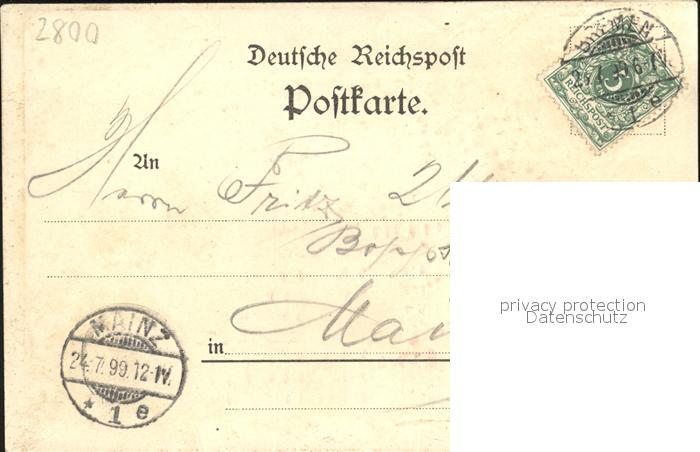 2800
Deutsche Reichspost
Postkarte.
An
Herrn Fritz
in Mai
MAINZ
24.7.99.12-1V.
* 1 e
5
REICHSPOST
1 e
privacy protection
Datenschutz